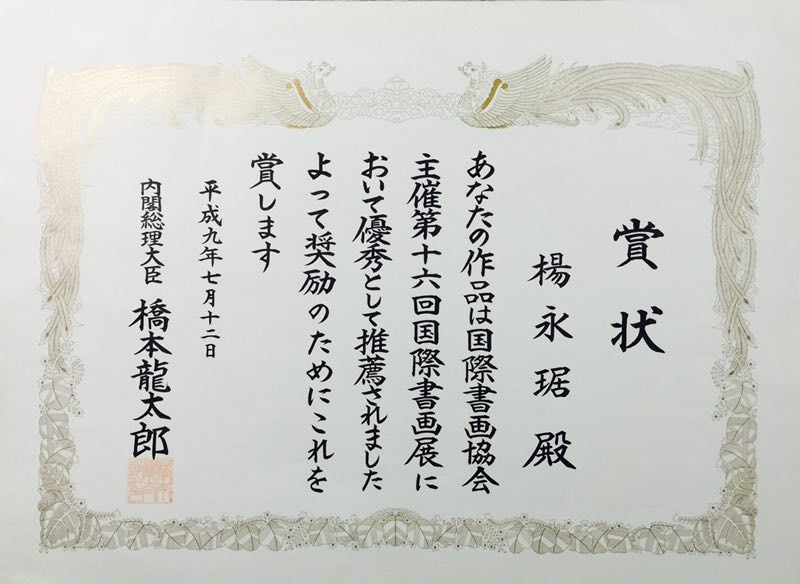 賞状
楊永琚殿
あなたの作品は国際書画協会
主催第十六回国際書画展に
おいて優秀として推薦されました
よって奨励のためにこれを
賞します
平成九年七月十二日
内閣総理大臣 橋本龍太郎